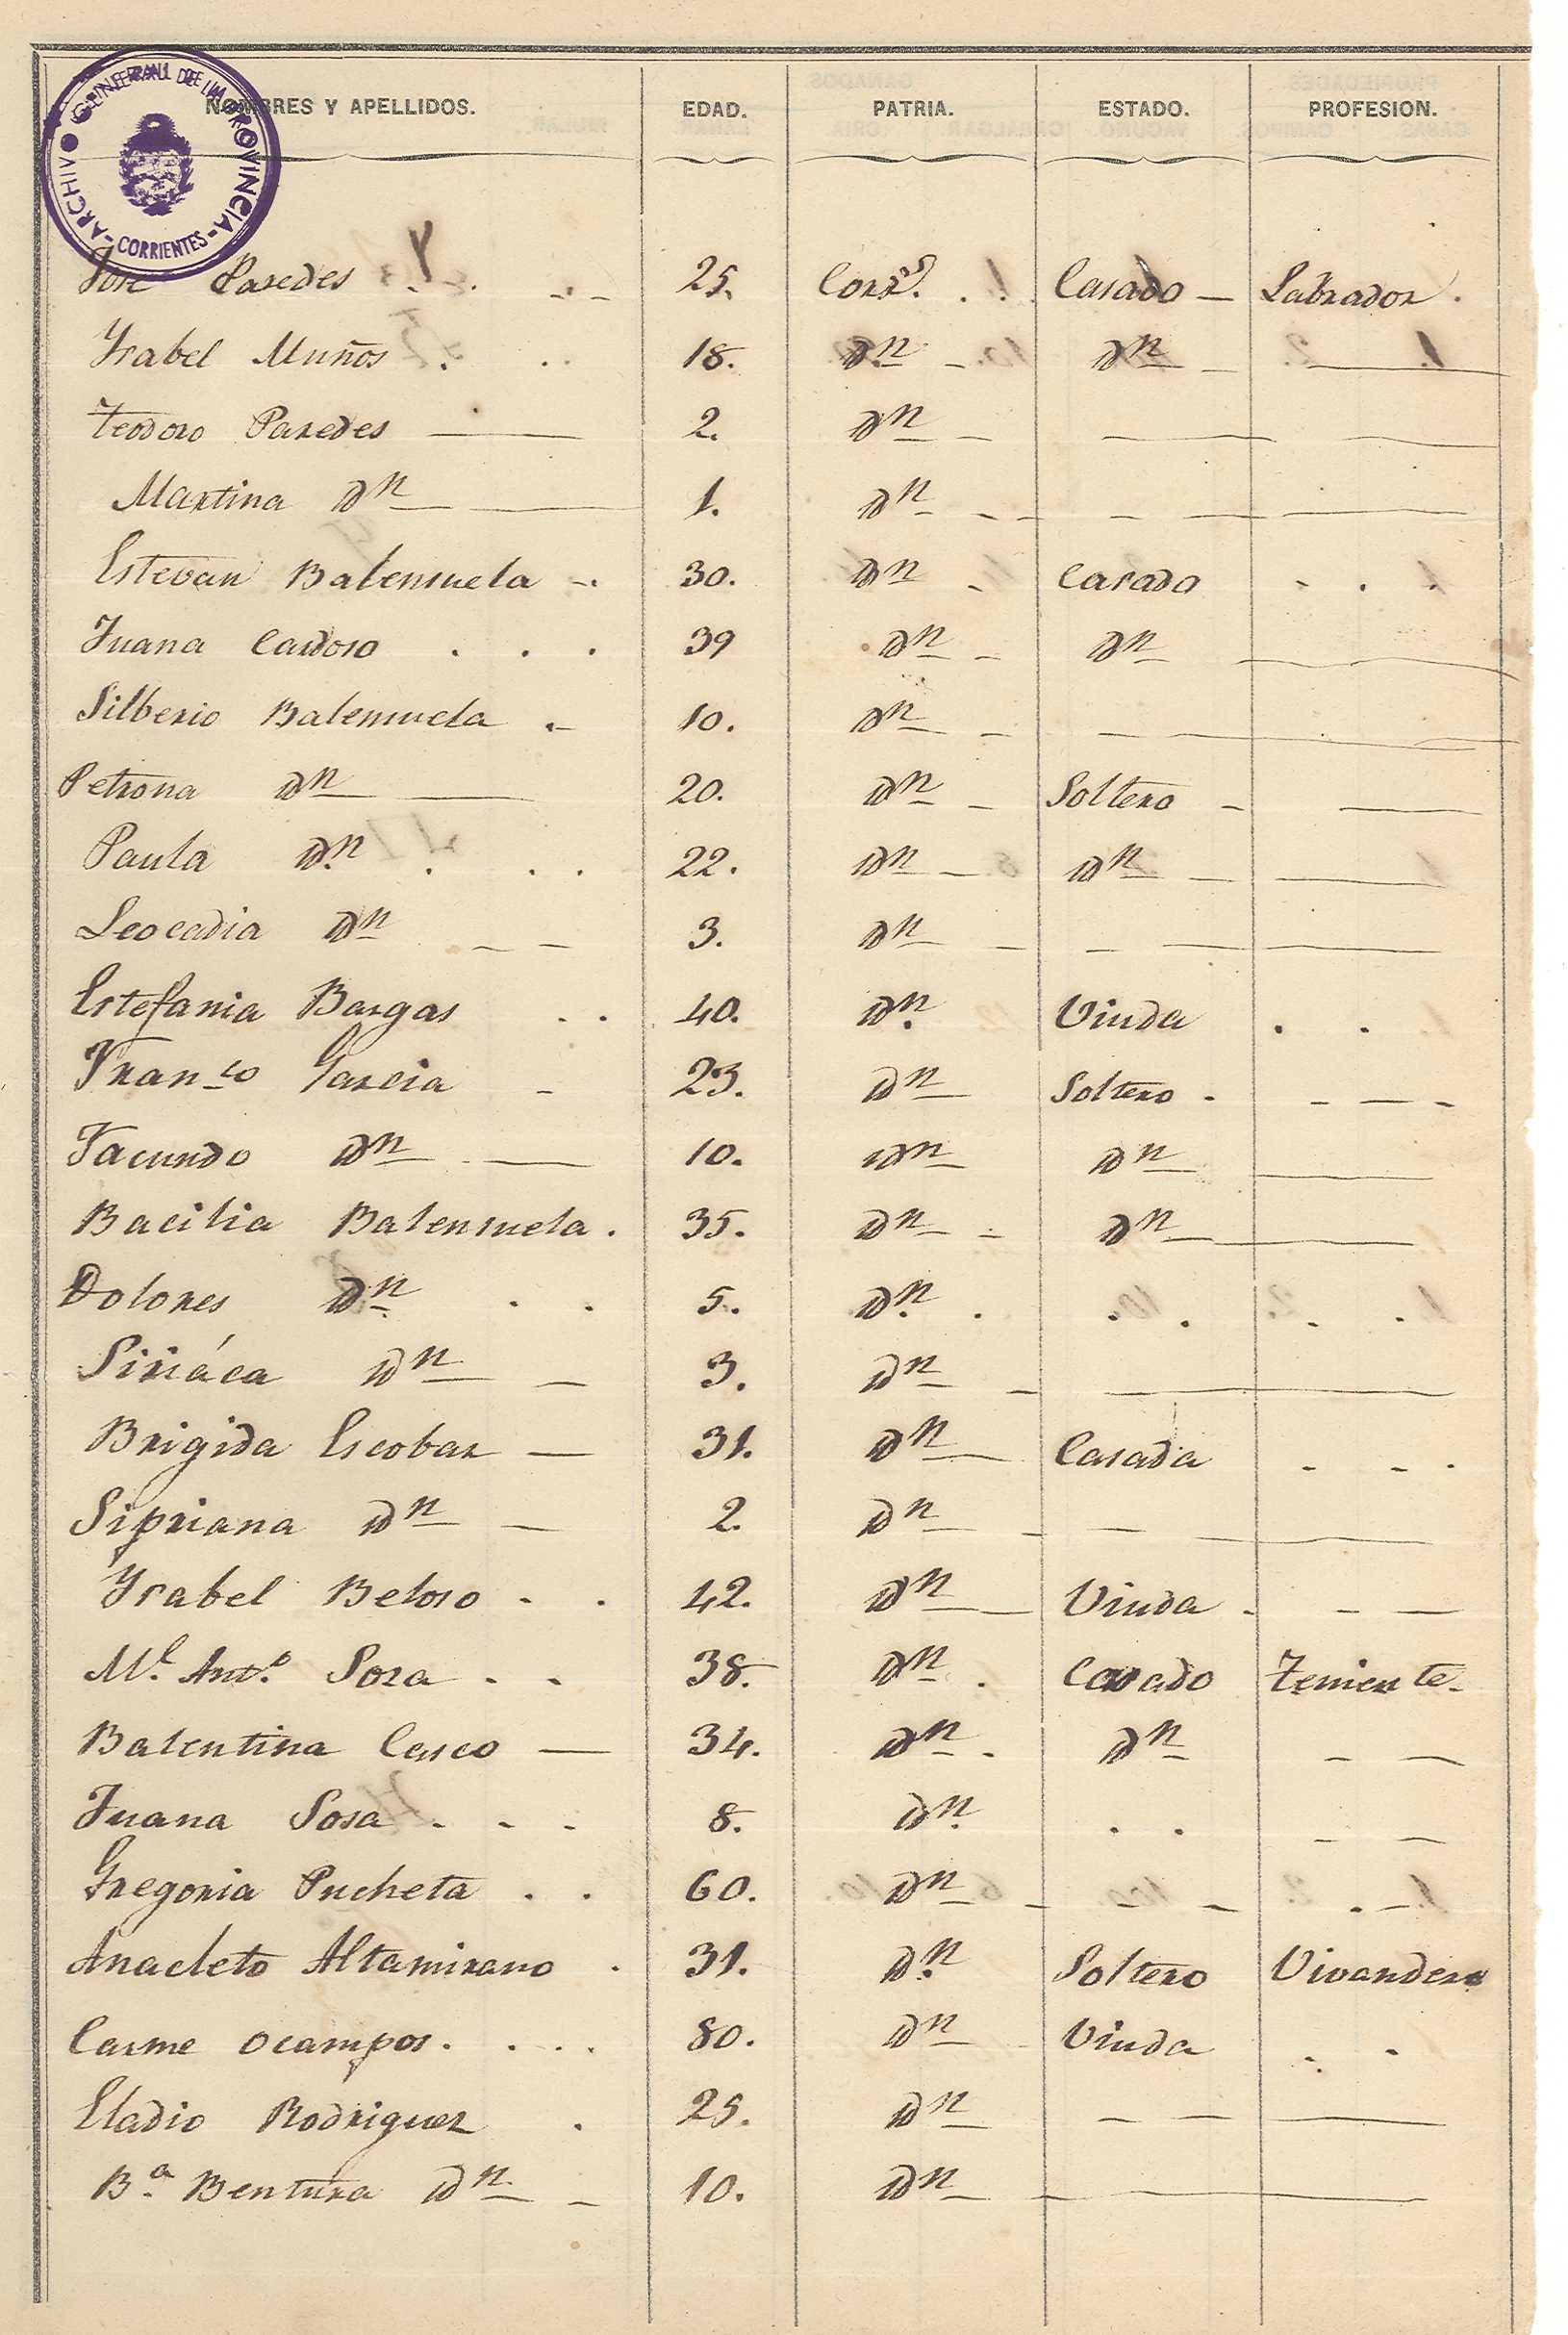 ARCHIVO GENERAL DE LA PROVINCIA - CORRIENTES -
NOMBRES Y APELLIDOS. EDAD. PATRIA. ESTADO. PROFESION.
José Paredes 25. Corr.s Casado Labrador.
Ysabel Muños 18. Dn Dn
Teodoro Paredes 2. Dn
Martina Dn 1. Dn
Estevan Balensuela 30. Dn Casado
Juana Cardoso 39 Dn Dn
Silberio Balensuela 10. Dn
Petrona Dn 20. Dn Soltero
Paula Dn 22. Dn Dn
Leocadia Dn 3. Dn
Estefania Bargas 40. Dn Viuda
Franco Garcia 23. Dn Soltero
Facundo Dn 10. Dn Dn
Bacilia Balensuela. 35. Dn Dn
Dolores Dn 5. Dn
Siriáca Dn 3. Dn
Brigida Escobar 31. Dn Casada
Sipriana Dn 2. Dn
Ysabel Beloso 42. Dn Viuda
Ml. Anto. Sosa 38. Dn Casado Teniente
Balentina Cesco 34. Dn Dn
Juana Sosa 8. Dn
Gregoria Pucheta 60. Dn
Anacleto Altamirano 31. Dn Soltero Vivandero
Carme Ocampos. 80. Dn Viuda
Eladio Rodriguez 25. Dn
Ba. Bentura Dn 10. Dn